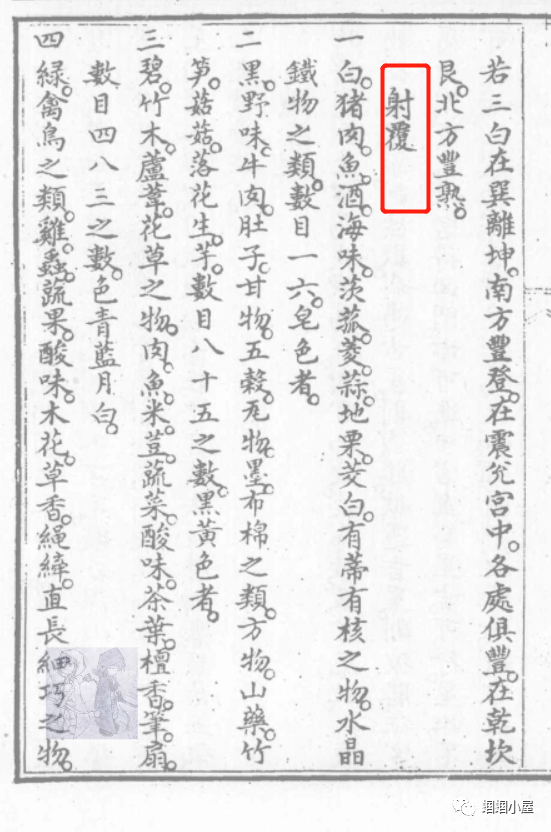 若三白在巽離坤。南方豐登。在震兊宮中。各處俱豐。在乾坎
艮。北方豐熟。
射覆
一白。猪肉。魚酒。海味。茨菰。菱。蒜。地栗。茭白。有蒂有核之物。水晶
鐵物之類。數目一六。皂色者。
二黑。野味。牛肉。肚子。甘物。五穀。瓦物。墨。布棉之類。方物。山藥。竹
笋。菇菇。落花生。芋。數目八十五之數。黑黃色者。
三碧。竹木。蘆葦。花草之物。肉。魚。米。荳。蔬菜。酸味。茶葉。檀香。筆。扇。
數目四八三之數。色青藍月白。
四綠。禽鳥之類。雞。蟲。蔬果。酸味。木花。草香。繩。緯。直長細巧之物。
蝈蝈小屋